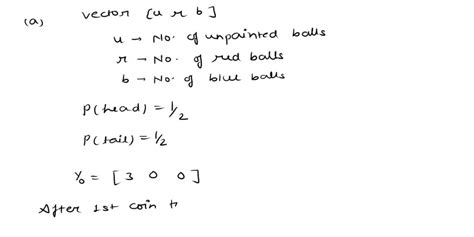 (a) vector [u r b]
u → No. of unpainted balls
r → No. of red balls
b → No. of blue balls
P(head) = 1/2
P(tail) = 1/2
Y₀ = [3 0 0]
After 1st coin t